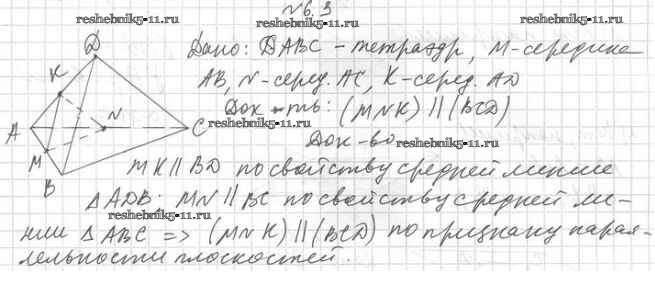 №6.3
reshebnik5-11.ru
reshebnik5-11.ru
reshebnik5-11.ru
D
Дано: DABC - тетраэдр, M-середина
K
AB, N-серед. AC, K-серед. AD
N
Док-ть: (MNK) || (BCD)
A
C
reshebnik5-11.ru
Док-во
reshebnik5-11.ru
M
B
MK || BD по свойству средней линии
△ADB. MN || BC по свойству средней ли-
reshebnik5-11.ru
нии △ABC => (MNK) || (BCD) по признаку парал-
лельности плоскостей.